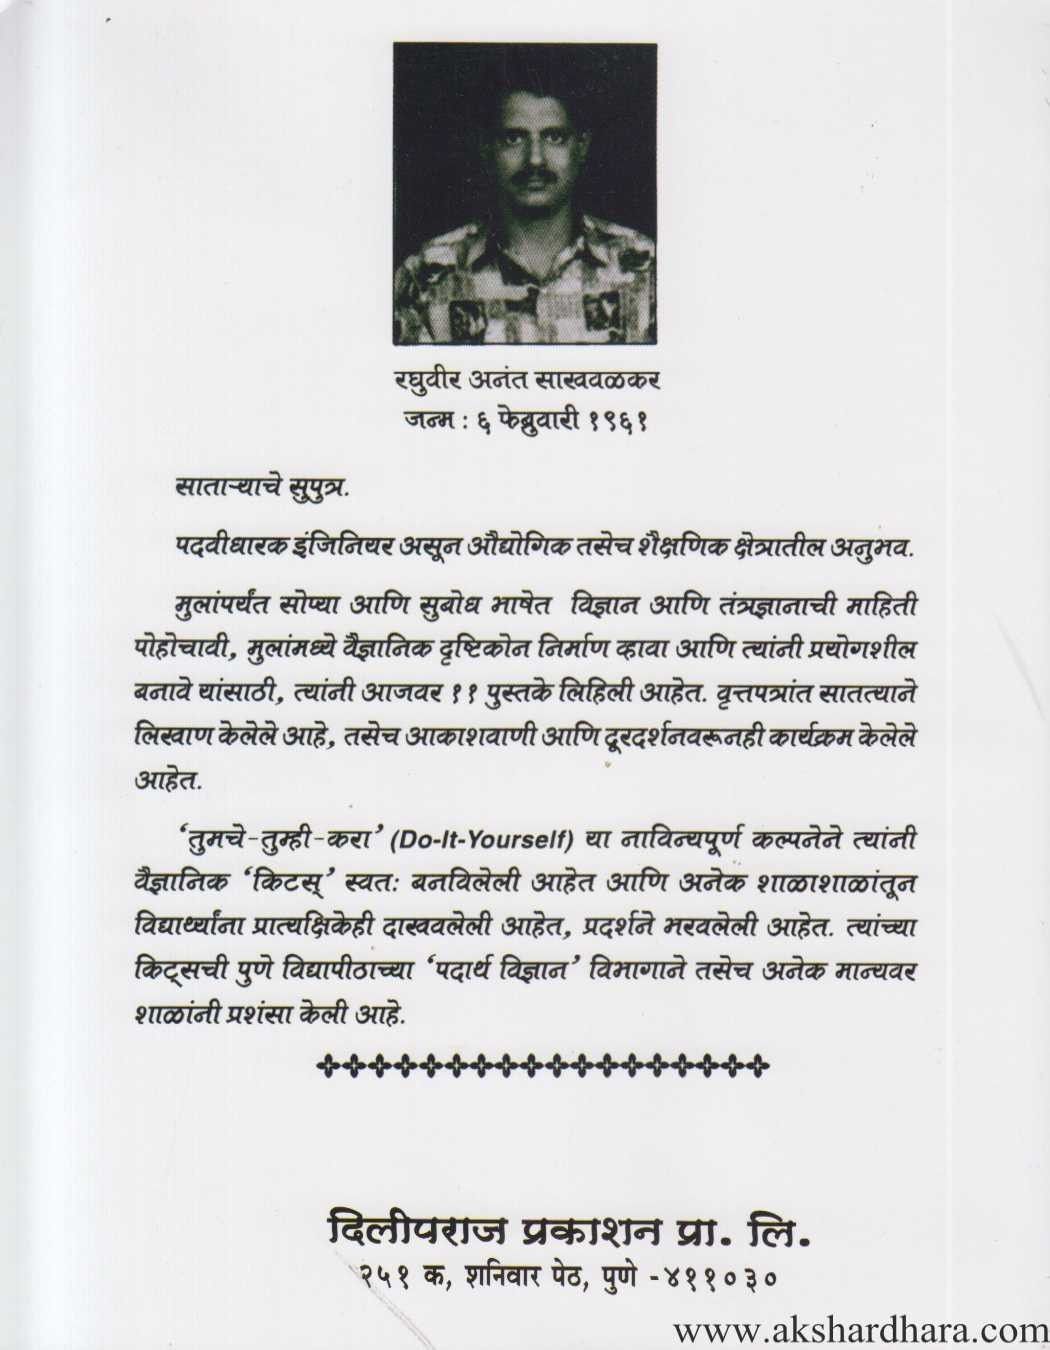 रघुवीर अनंत साखवळकर
जन्म : ६ फेब्रुवारी १९६१
साताऱ्याचे सुपुत्र.
पदवीधारक इंजिनियर असून औद्योगिक तसेच शैक्षणिक क्षेत्रातील अनुभव.
मुलांपर्यंत सोप्या आणि सुबोध भाषेत विज्ञान आणि तंत्रज्ञानाची माहिती
पोहोचावी, मुलांमध्ये वैज्ञानिक दृष्टिकोन निर्माण व्हावा आणि त्यांनी प्रयोगशील
बनावे यांसाठी, त्यांनी आजवर ११ पुस्तके लिहिली आहेत. वृत्तपत्रांत सातत्याने
लिखाण केलेले आहे, तसेच आकाशवाणी आणि दूरदर्शनवरूनही कार्यक्रम केलेले
आहेत.
‘तुमचे-तुम्ही-करा’ (Do-It-Yourself) या नाविन्यपूर्ण कल्पनेने त्यांनी
वैज्ञानिक ‘किटस्’ स्वतः बनविलेली आहेत आणि अनेक शाळाशाळांतून
विद्यार्थ्यांना प्रात्यक्षिकेही दाखवलेली आहेत, प्रदर्शने भरवलेली आहेत. त्यांच्या
किट्सची पुणे विद्यापीठाच्या ‘पदार्थ विज्ञान’ विभागाने तसेच अनेक मान्यवर
शाळांनी प्रशंसा केली आहे.
दिलीपराज प्रकाशन प्रा. लि.
२५१ क, शनिवार पेठ, पुणे -४११०३०
www.akshardhara.com